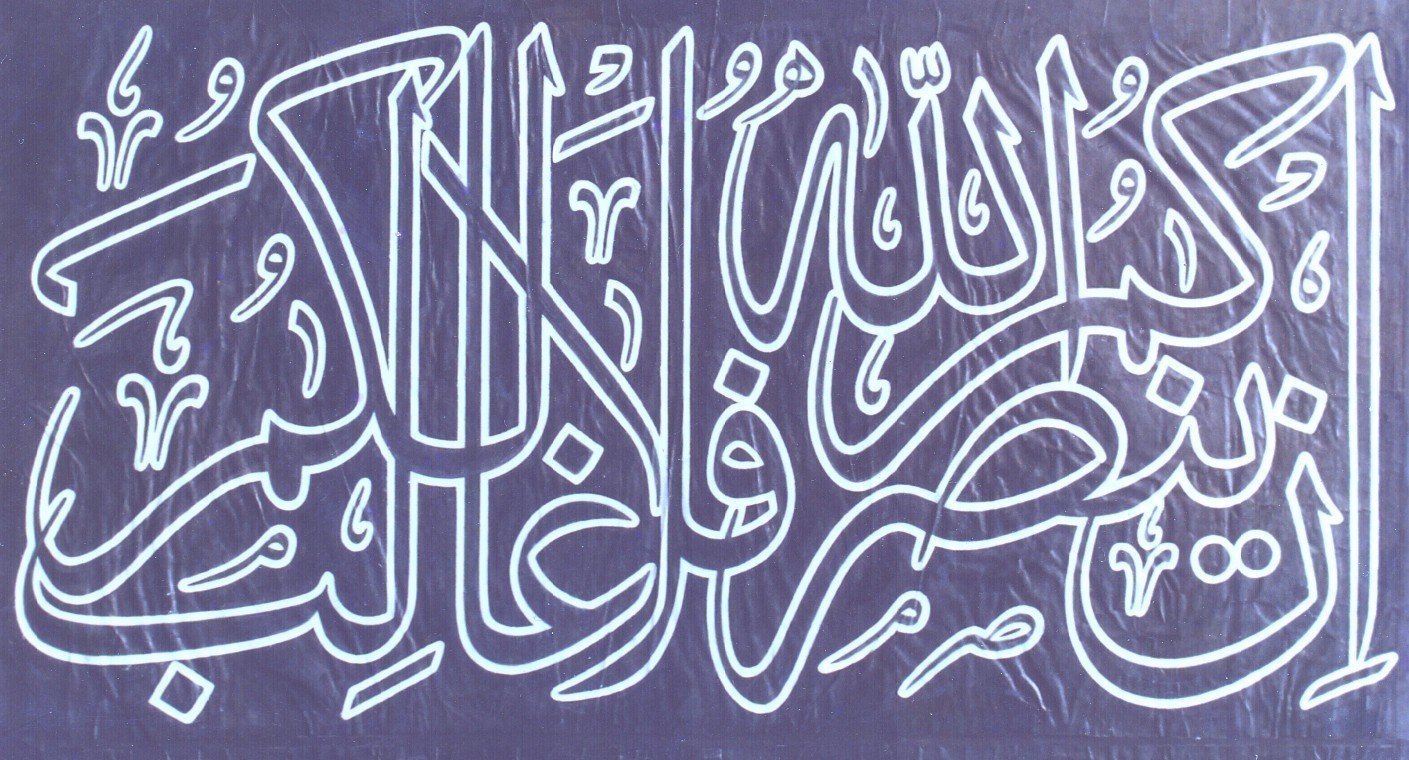 إِنْ يَنْصُرْكُمُ اللَّهُ فَلَا غَالِبَ لَكُمْ